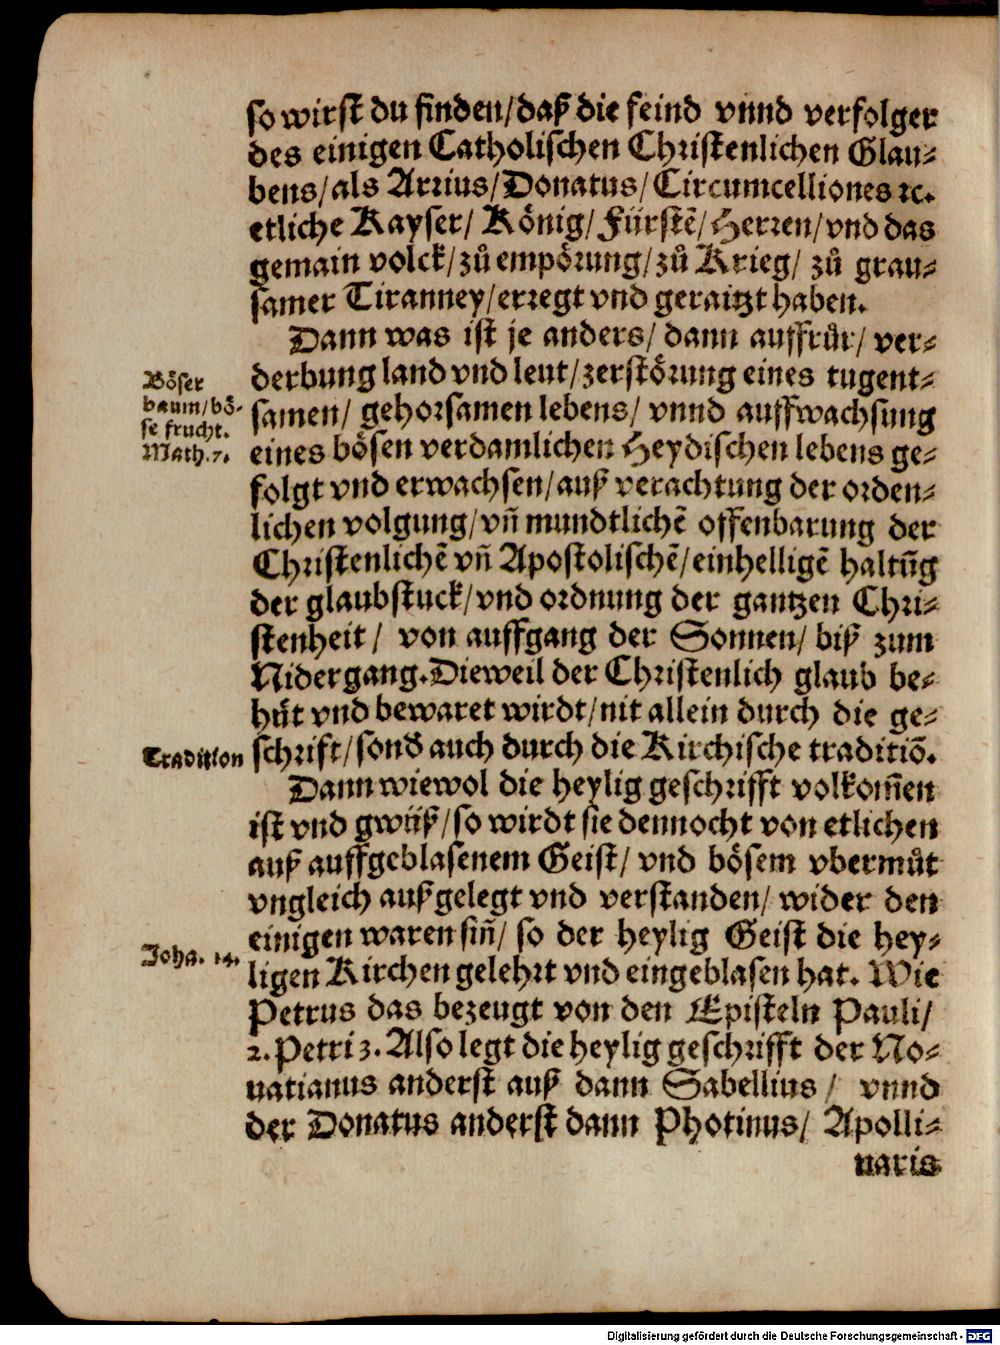 so wirst du finden/daß die feind vnnd verfolger
des einigen Catholischen Christenlichen Glau⸗
bens/als Arrius/Donatus/Circumcelliones ꝛc.
etliche Kayser/ König/ Fürstẽ/ Herren/vnd das
gemain volck/zů empörung/zů Krieg/ zů grau⸗
samer Tiranney/erregt vnd geraitzt haben.
Dann was ist je anders/ dann auffrůr/ ver⸗
derbung land vnd leut/zerstörung eines tugent⸗
samen/ gehorsamen lebens/ vnnd auffwachsung
eines bösen verdamlichen Heydischen lebens ge⸗
folgt vnd erwachsen/auß verachtung der orden⸗
lichen volgung/vñ mundtlichẽ offenbarung der
Christenlichẽ vñ Apostolischẽ/einhelligẽ haltũg
der glaubstuck/vnd ordnung der gantzen Chri⸗
stenheit/ von auffgang der Sonnen/ biß zum
Nidergang.Dieweil der Christenlich glaub be⸗
hůt vnd bewaret wirdt/nit allein durch die ge⸗
schrift/sond̕ auch durch die Kirchische traditiõ.
Dann wiewol die heylig geschrifft volkom̃en
ist vnd gwüß/so wirdt sie dennocht von etlichen
auß auffgeblasenem Geist/ vnd bösem vbermůt
vngleich außgelegt vnd verstanden/ wider den
einigen waren siñ/ so der heylig Geist die hey⸗
ligen Kirchen gelehrt vnd eingeblasen hat. Wie
Petrus das bezeugt von den Episteln Pauli/
2.Petri 3.Also legt die heylig geschrifft der No⸗
uatianus anderst auß dann Sabellius/ vnnd
der Donatus anderst dann Photinus/ Apolli⸗
naris
Böser
baum/bö⸗
se frucht.
Math.7.
Tradition
Joha. 14.
Digitalisierung gefördert durch die Deutsche Forschungsgemeinschaft - DFG